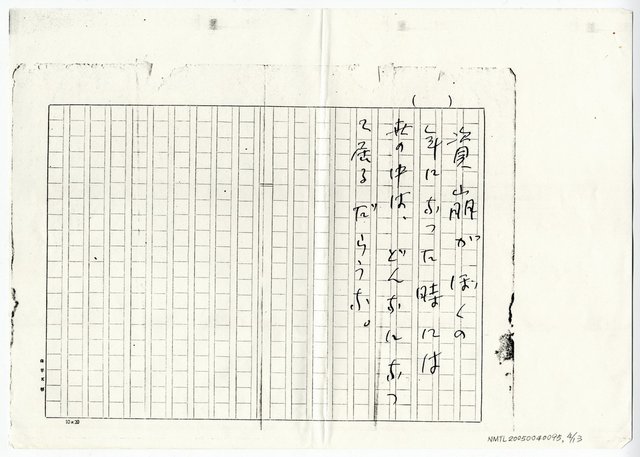 資崩がぼくの
年になった時には
世の中は、どんなになっ
て居るだらうな。
10×20
NMTL20050040095,